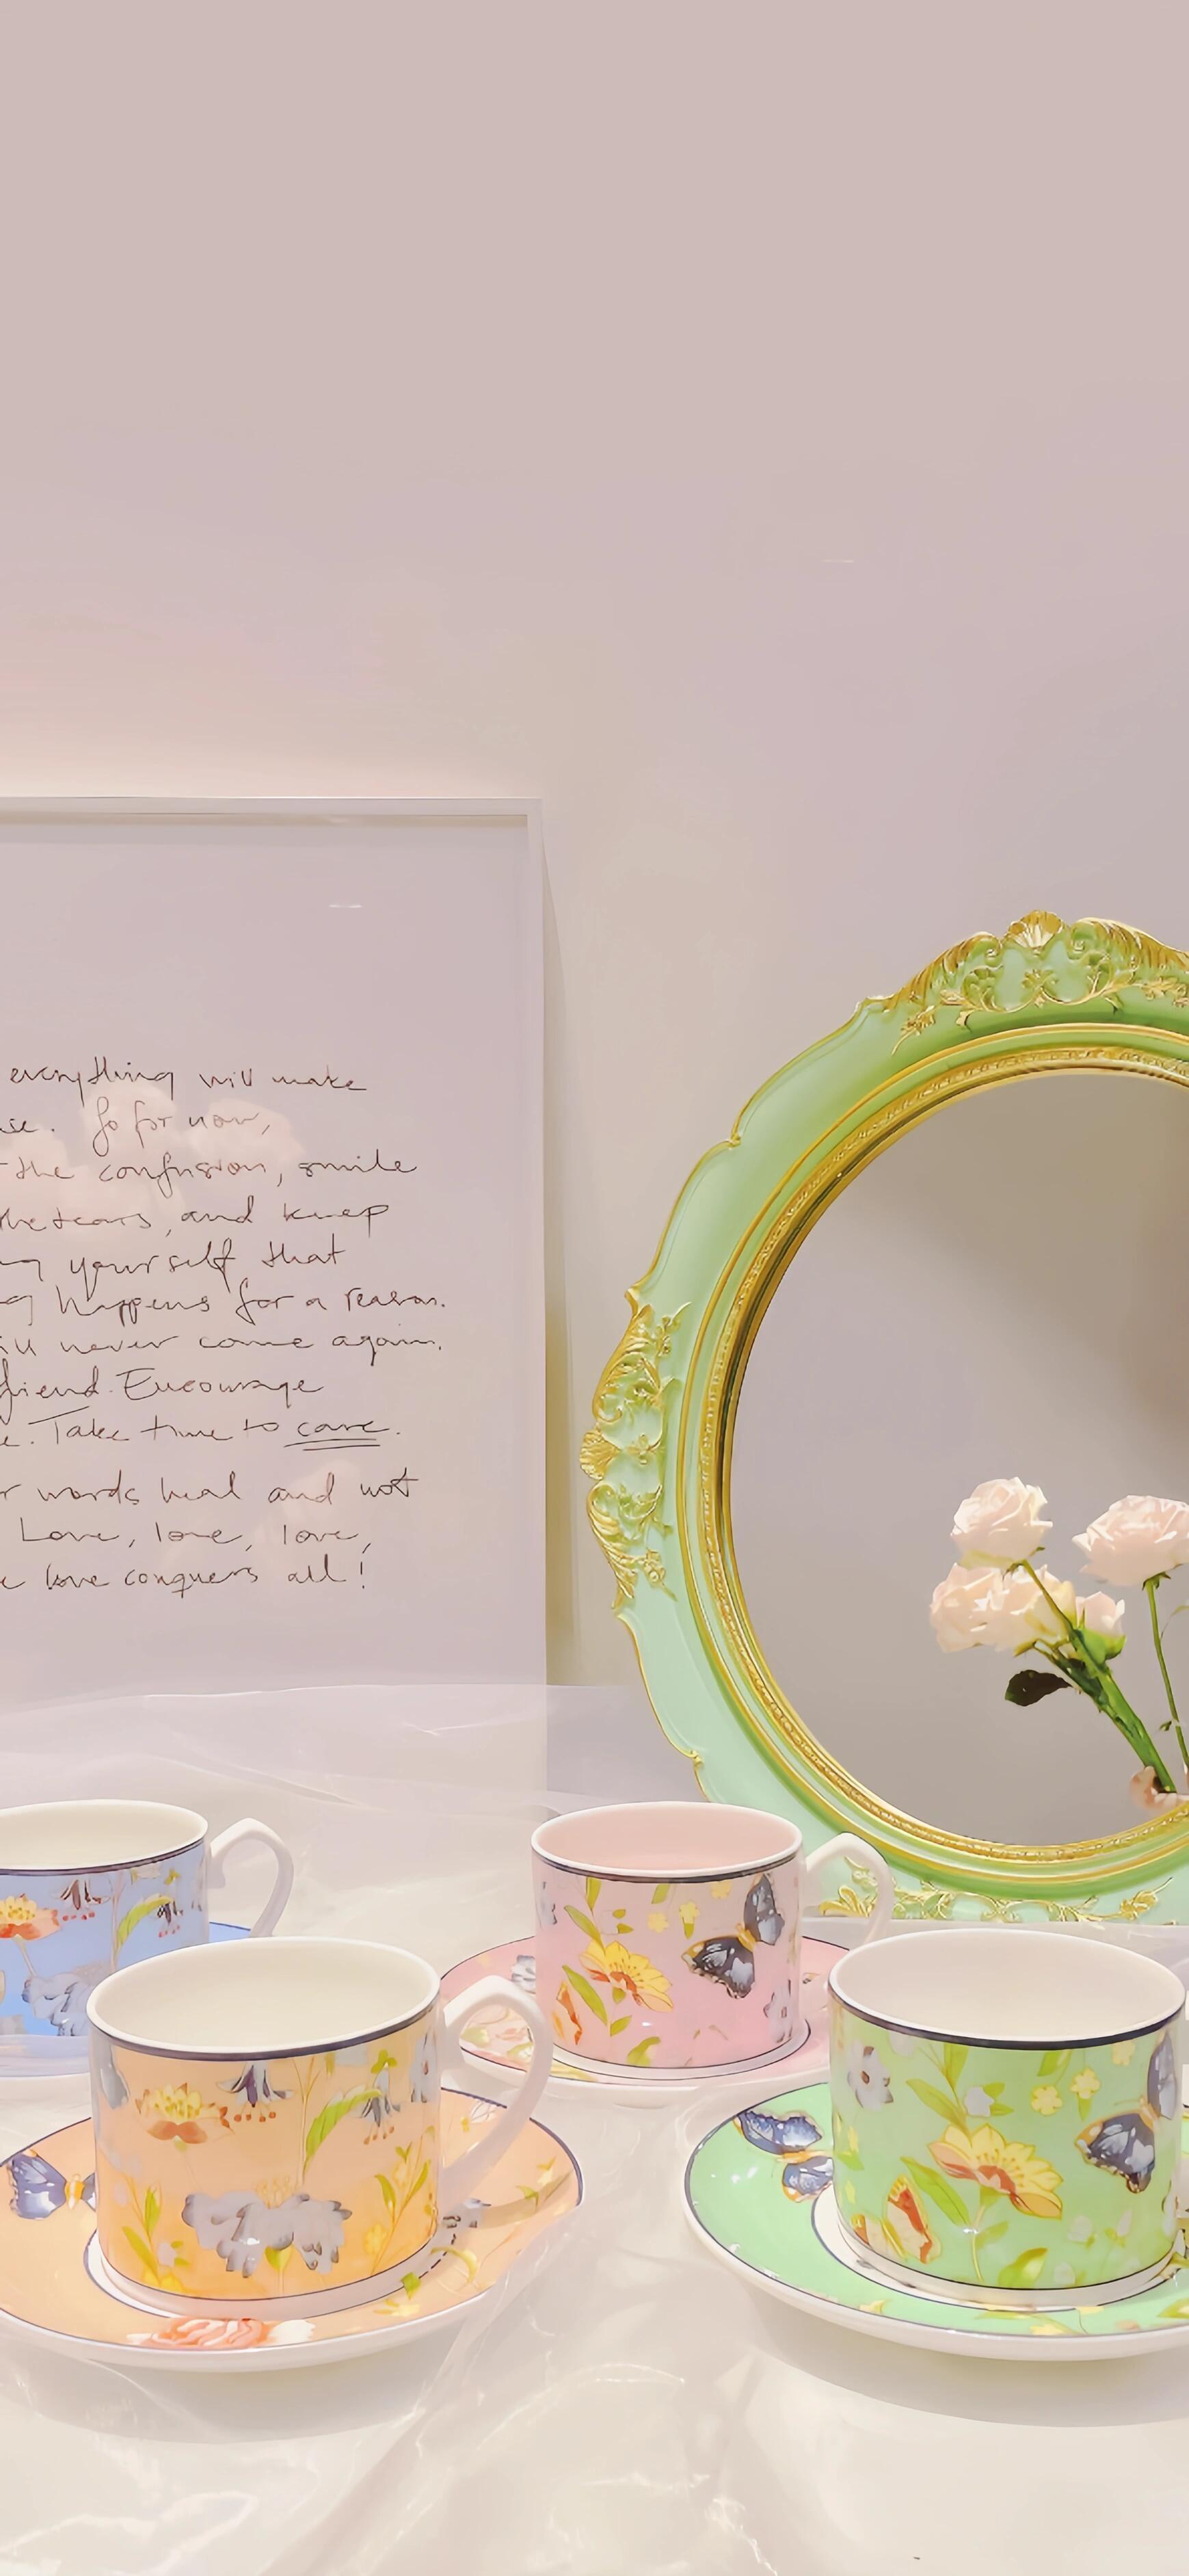 everything will make
So for now,
the confusion, smile
the tears, and keep
yourself that
happens for a reason.
never come again.
friend. Encourage
Take time to care.
words heal and not
Love, love, love,
love conquers all!